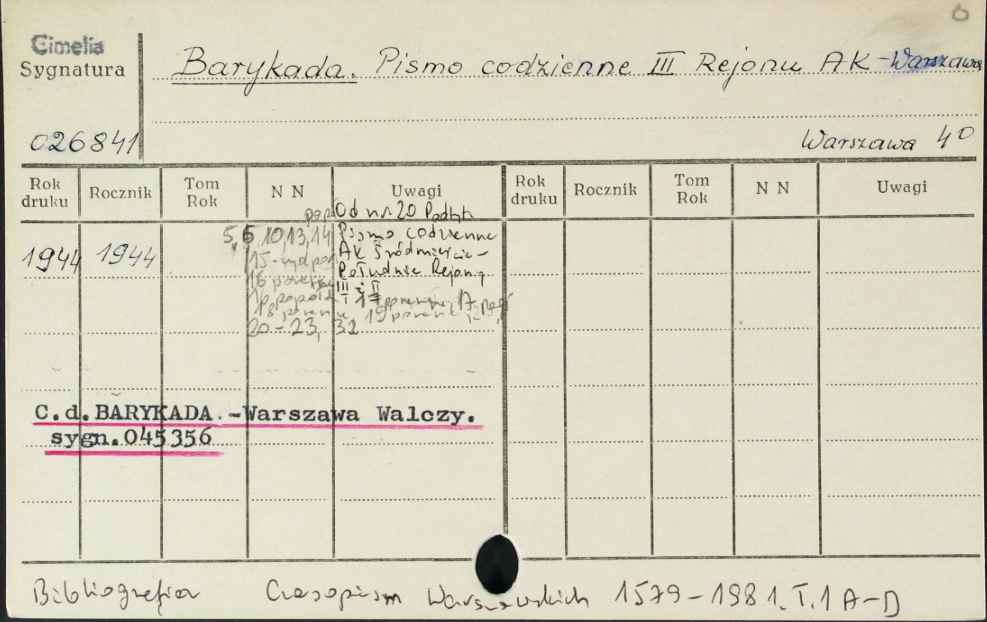 6
Cimelia
Sygnatura
Barykada. Pismo codzienne III Rejonu AK - Warszawa
026841
Warszawa 4°
Rok druku Rocznik Tom Rok N N Uwagi Rok druku Rocznik Tom Rok N N Uwagi
Od nr 20 Podtyt.
5, 6, 10, 13, 14 Pismo codzienne
1944 1944 AK Śródmieście -
Południe Rejony
III i II
20-23, 32
C.d. BARYKADA.-Warszawa Walczy.
sygn.045356
Bibliografia Czasopism Warszawskich 1579-1981. T.1 A-D